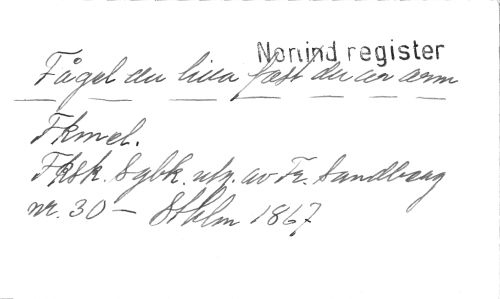 Norlind register
Fågel du lilla fast du är arm
Fkmel.
Fksk. Sgbk. utg. av Fr. Sandberg
nr. 30 — Sthlm 1867